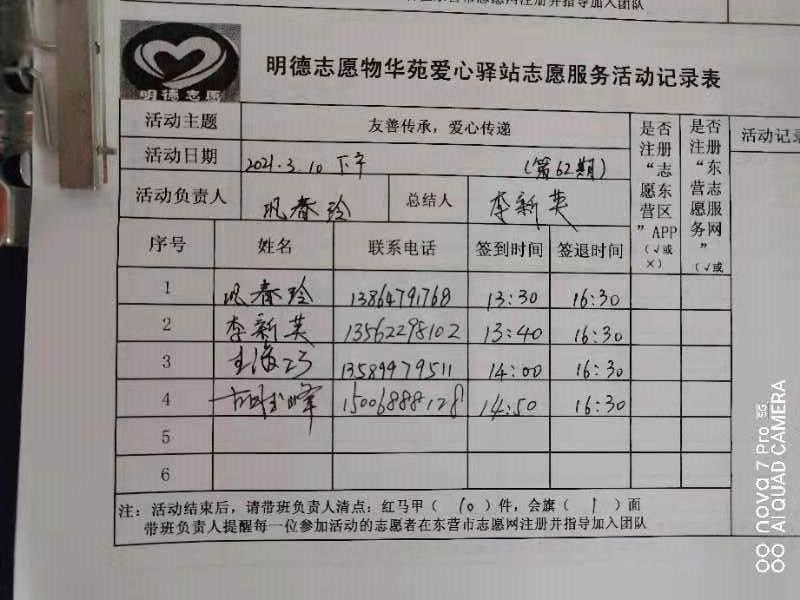 东营市志愿网注册并指导加入团队
明德志愿
明德志愿物华苑爱心驿站志愿服务活动记录表
活动主题 友善传承，爱心传递
活动日期 2021.3.10 下午 （第62期）
活动负责人 巩春玲 总结人 李新英
是否注册“志愿东营区”APP（√或×）
是否注册“东营志愿服务网”（√或
活动记录
序号 姓名 联系电话 签到时间 签退时间
1 巩春玲 13864791768 13:30 16:30
2 李新英 13562298102 13:40 16:30
3 13589979511 14:00 16:30
4 15006888128 14:50 16:30
5
6
注：活动结束后，请带班负责人清点：红马甲（10）件，会旗（1）面
带班负责人提醒每一位参加活动的志愿者在东营市志愿网注册并指导加入团队
nova 7 Pro 5G
AI QUAD CAMERA